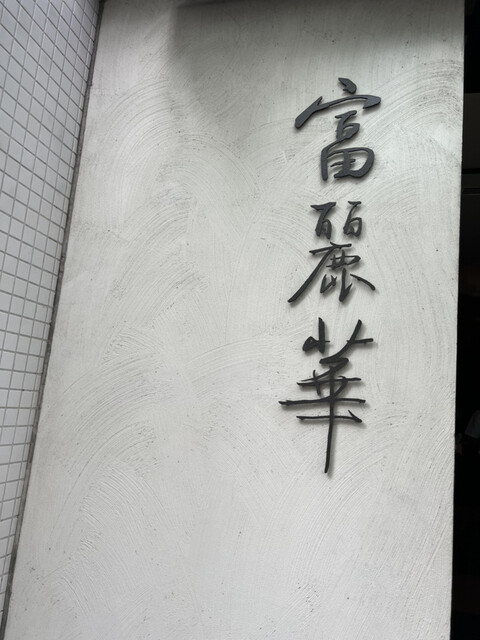 富麗華